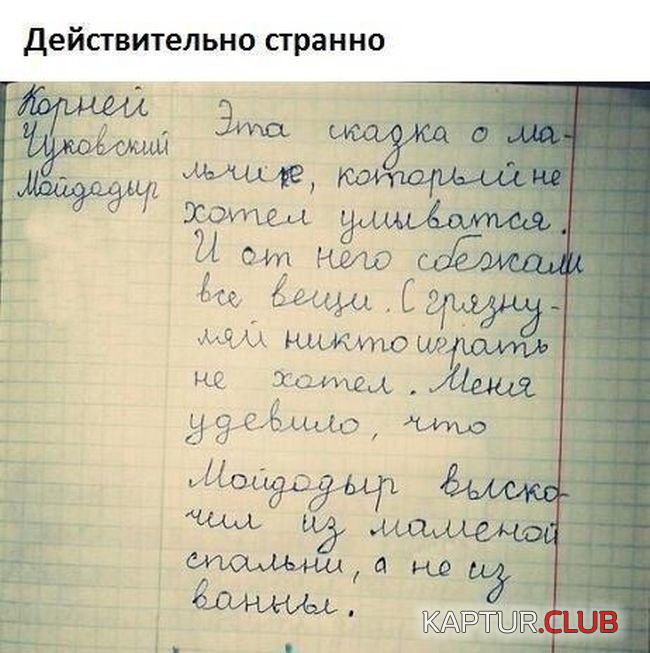 Действительно странно
Корней
Чуковский
Мойдодыр
Эта сказка о ма-
льчике, который не
хотел умыватся.
И от него сбежали
все вещи. С грязну-
лей никто играть
не хотел. Меня
удевило, что
Мойдодыр выско-
чил из маменой
спальни, а не из
ванны.
KAPTUR.CLUB